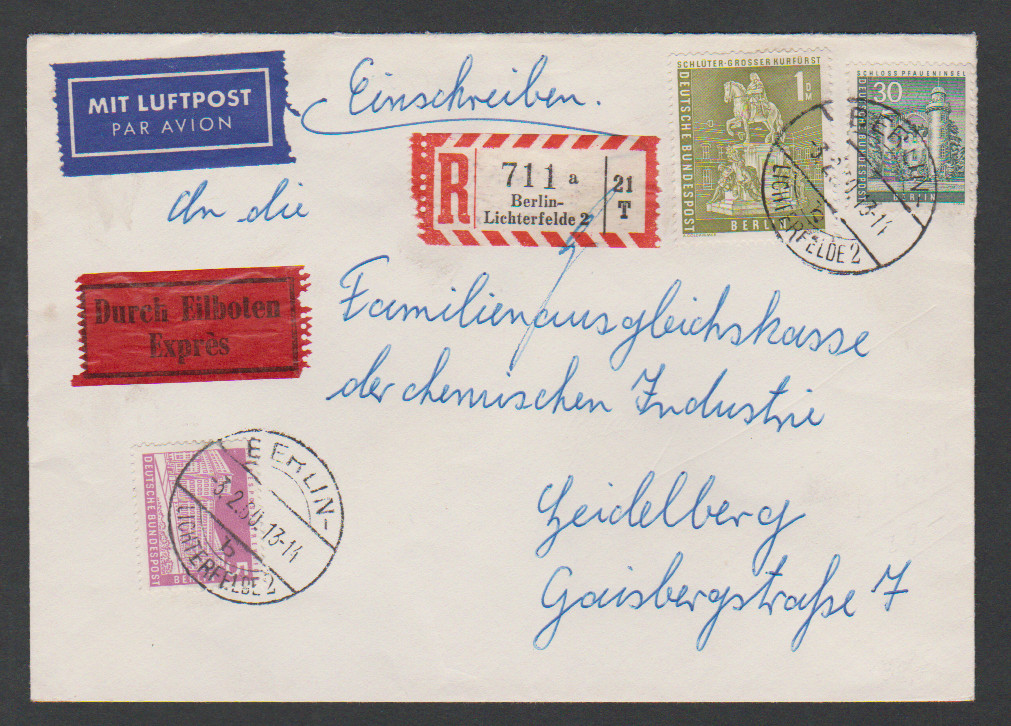 MIT LUFTPOST
PAR AVION
Einschreiben.
SCHLÜTER-GROSSER KURFÜRST
DEUTSCHE BUNDESPOST
1
DM
BERLIN
SCHLOSS PFAUENINSEL
30
DEUTSCHE BUNDESPOST
BERLIN
BERLIN-
13-14
LICHTERFELDE 2
R
711 a
Berlin-
Lichterfelde 2
21
T
An die
Durch Eilboten
Exprès
Familienausgleichskasse
der chemischen Industrie
Heidelberg
Gaisbergstraße 7
DEUTSCHE BUNDESPOST
BERLIN-
13-14
b
LICHTERFELDE 2